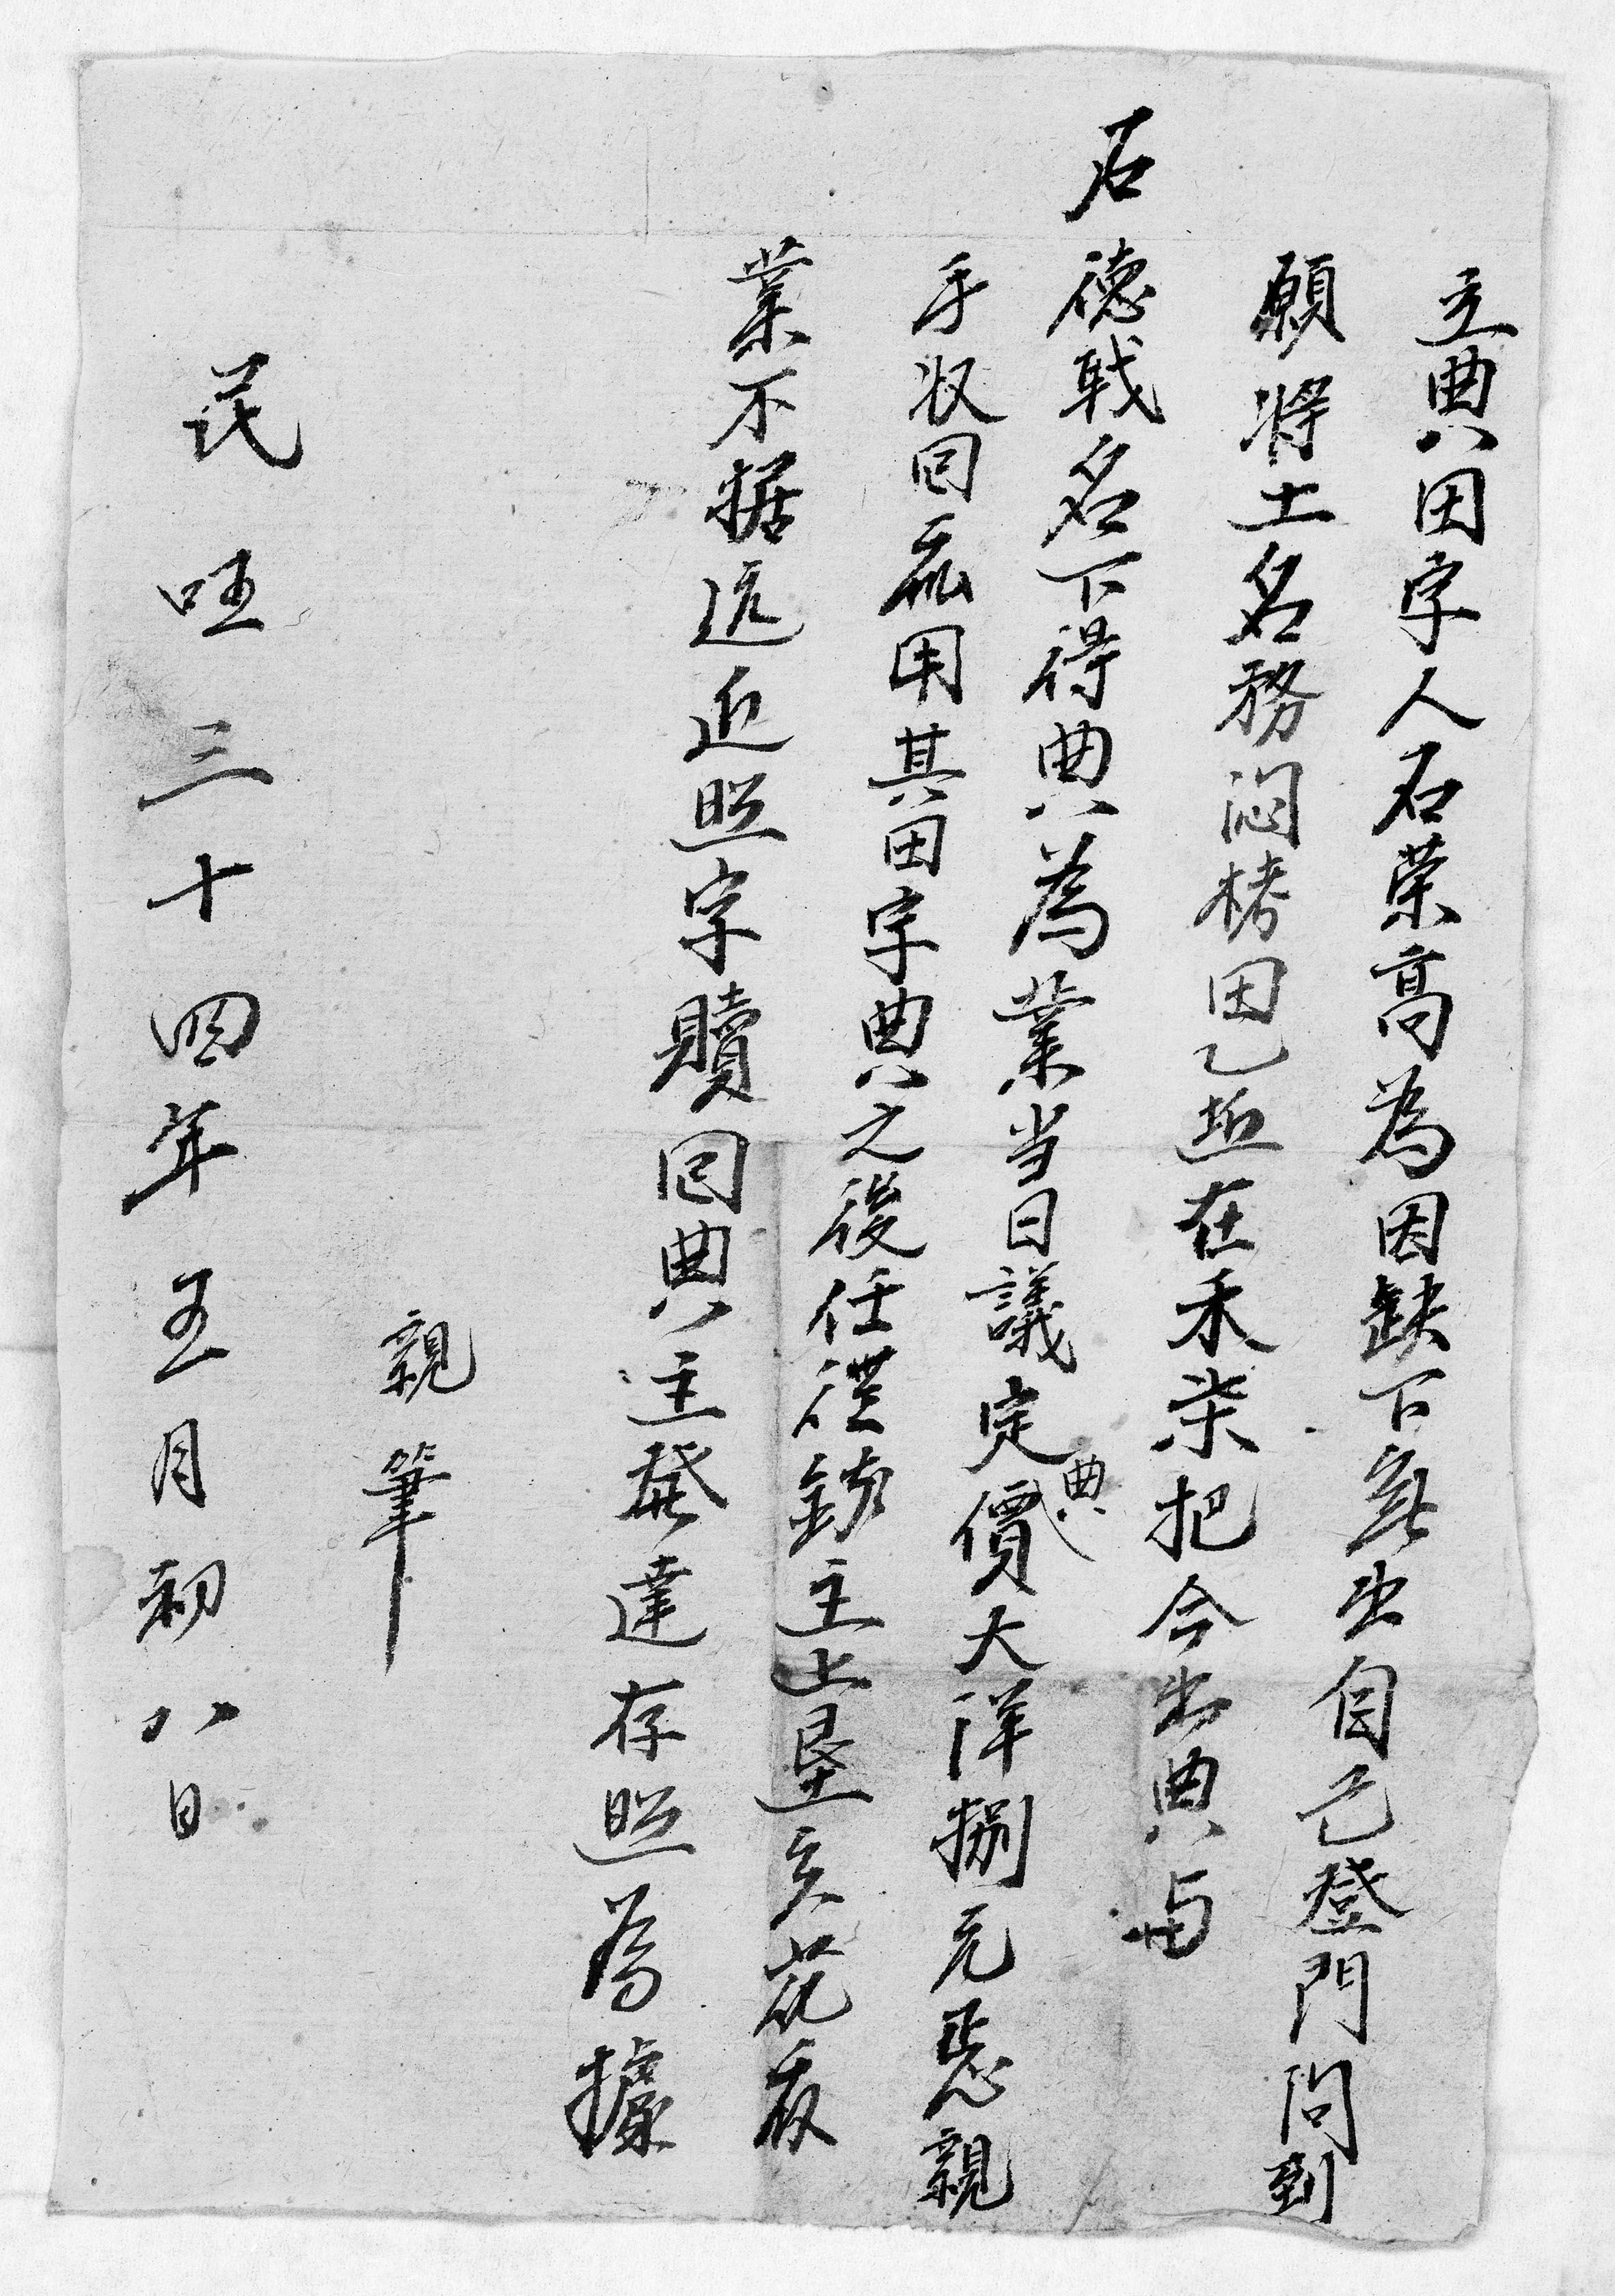 立典田字人石荣高為因缺下無出自己登門問到
願將土名務悶榜田乙坵在禾柒把今出典与
石德戰名下得典為業当日議定典價大洋捌元悉親
手收回應用其田字典之後任從錢主上垦亥花度
業不据远近照字贖回典主發達存照為據
親筆
民国三十四年五月初八日